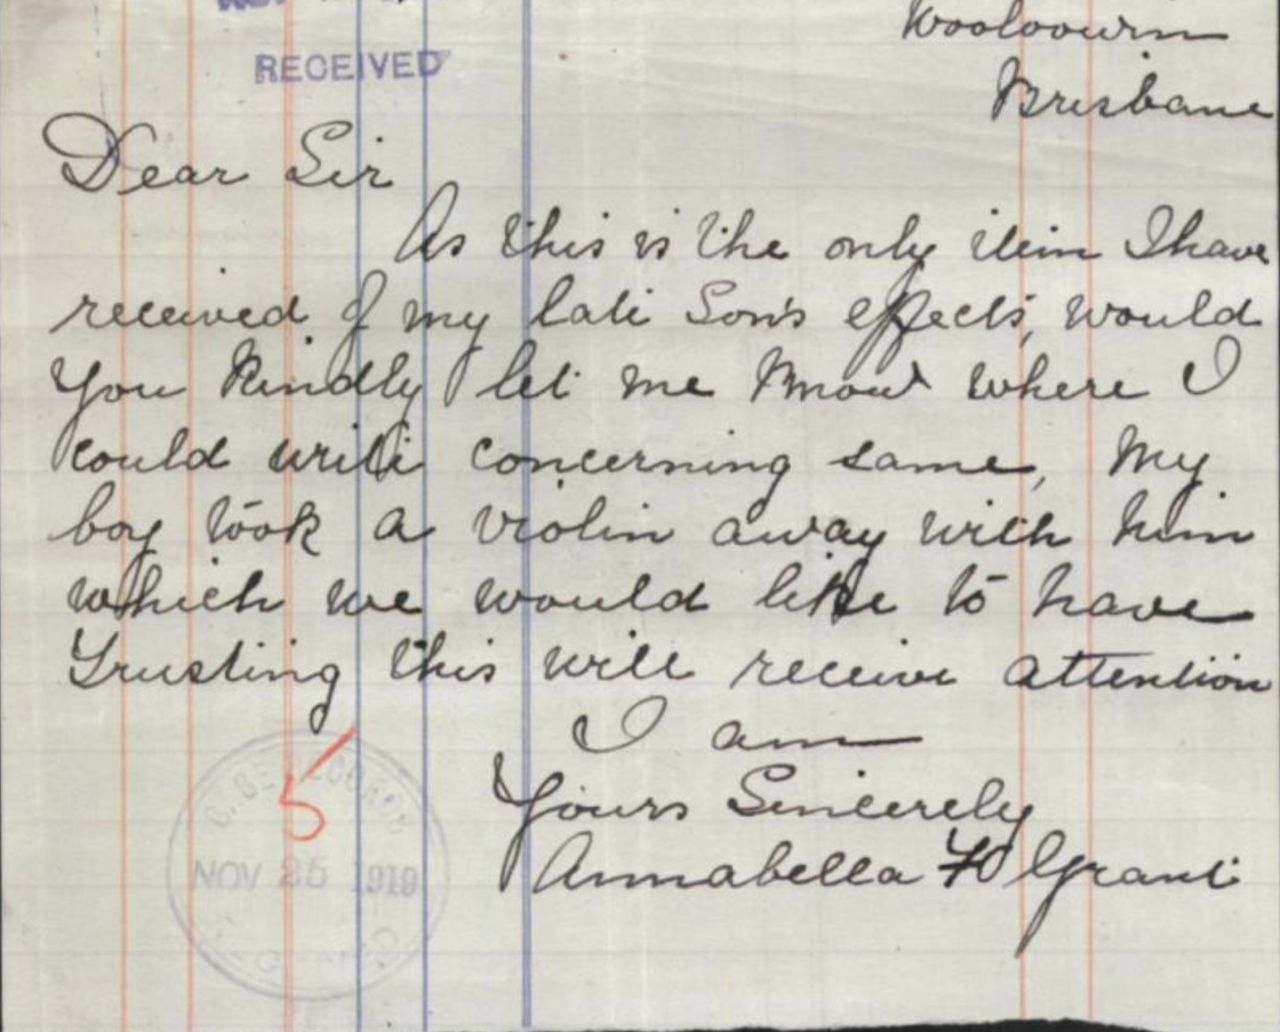 Wooloowin
RECEIVED
Brisbane
Dear Sir
As this is the only item I have
received of my late Son's effects, would
you kindly let me know where I
could write concerning same, My
boy took a violin away with him
which we would like to have
Trusting this will receive attention
I am
5
Yours Sincerely
Annabella Grant
NOV 25 1919